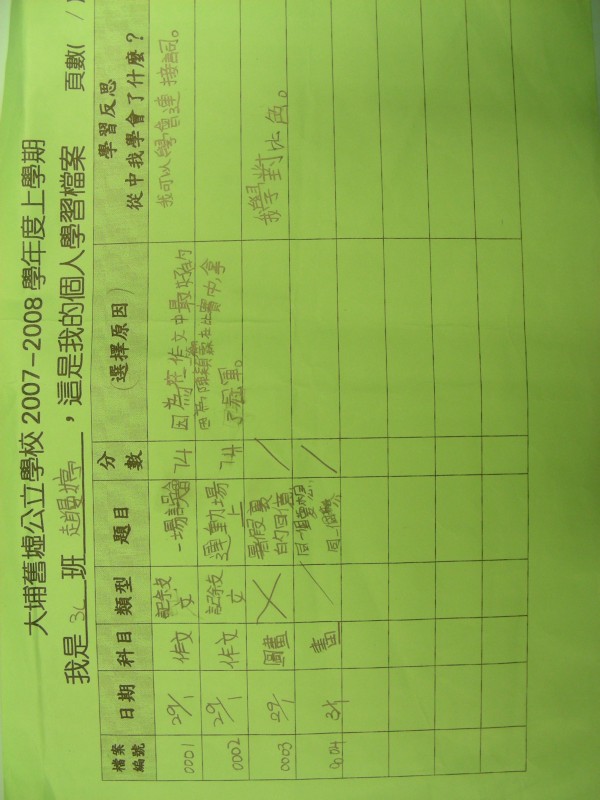 大埔舊墟公立學校 2007-2008 學年度上學期
我是 3C 班 趙慢婷 ，這是我的個人學習檔案 頁數( / )
檔案編號 日期 科目 類型 題目 分數 (選擇原因) 學習反思 從中我學會了什麼？
0001 29/1 作文 記敘文 一場誤會 74 因為在作文中最好的 我可以學會連接詞。
0002 29/1 作文 記敘文 運動場上 74 因為陳穎霖在比賽中拿了冠軍。
0003 29/1 圖畫 暑假裏的回憶 / 我學對比色。
0004 / /